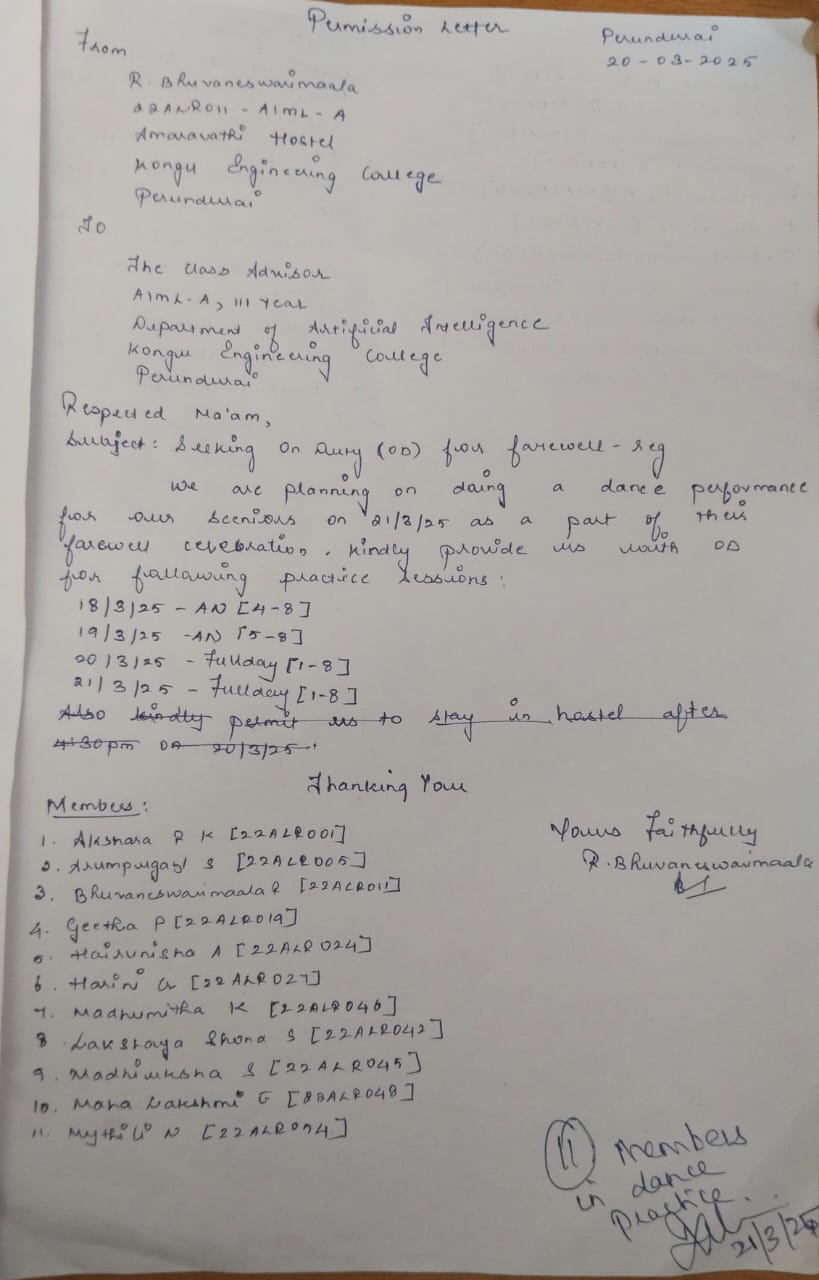 Permission Letter
Perundurai
20-03-2025
From
R. Bhuvaneswarimaala
22ALR011 - AIML - A
Amaravathi Hostel
Kongu Engineering College
Perundurai
To
The Class Advisor
AIML-A, III Year
Department of Artificial Intelligence
Kongu Engineering College
Perundurai
Respected Ma'am,
Subject: Seeking On Duty (OD) for farewell - reg
We are planning on doing a dance performance
for our seniors on 21/3/25 as a part of their
farewell celebration. Kindly provide us with OD
for following practice sessions:
18/3/25 - AN [4-8]
19/3/25 - AN [5-8]
20/3/25 - Fullday [1-8]
21/3/25 - Fullday [1-8]
Also kindly permit us to stay in hostel after
4:30pm on 20/3/25.
Thanking You
Members:
Yours Faithfully
R. Bhuvaneswarimaala
1. Akshara R K [22ALR001]
2. S [22ALR005]
3. Bhuvaneswarimaala R [22ALR011]
4. Geetha P [22ALR019]
5. Hairunisha A [22ALR024]
6. Harini G [22ALR027]
7. Madhumitha K [22ALR046]
8. Lakshaya Shona S [22ALR042]
9. S [22ALR045]
10. Maha Lakshmi G [22ALR048]
11. Mythili N
11 Members
in dance
practice.
21/3/25